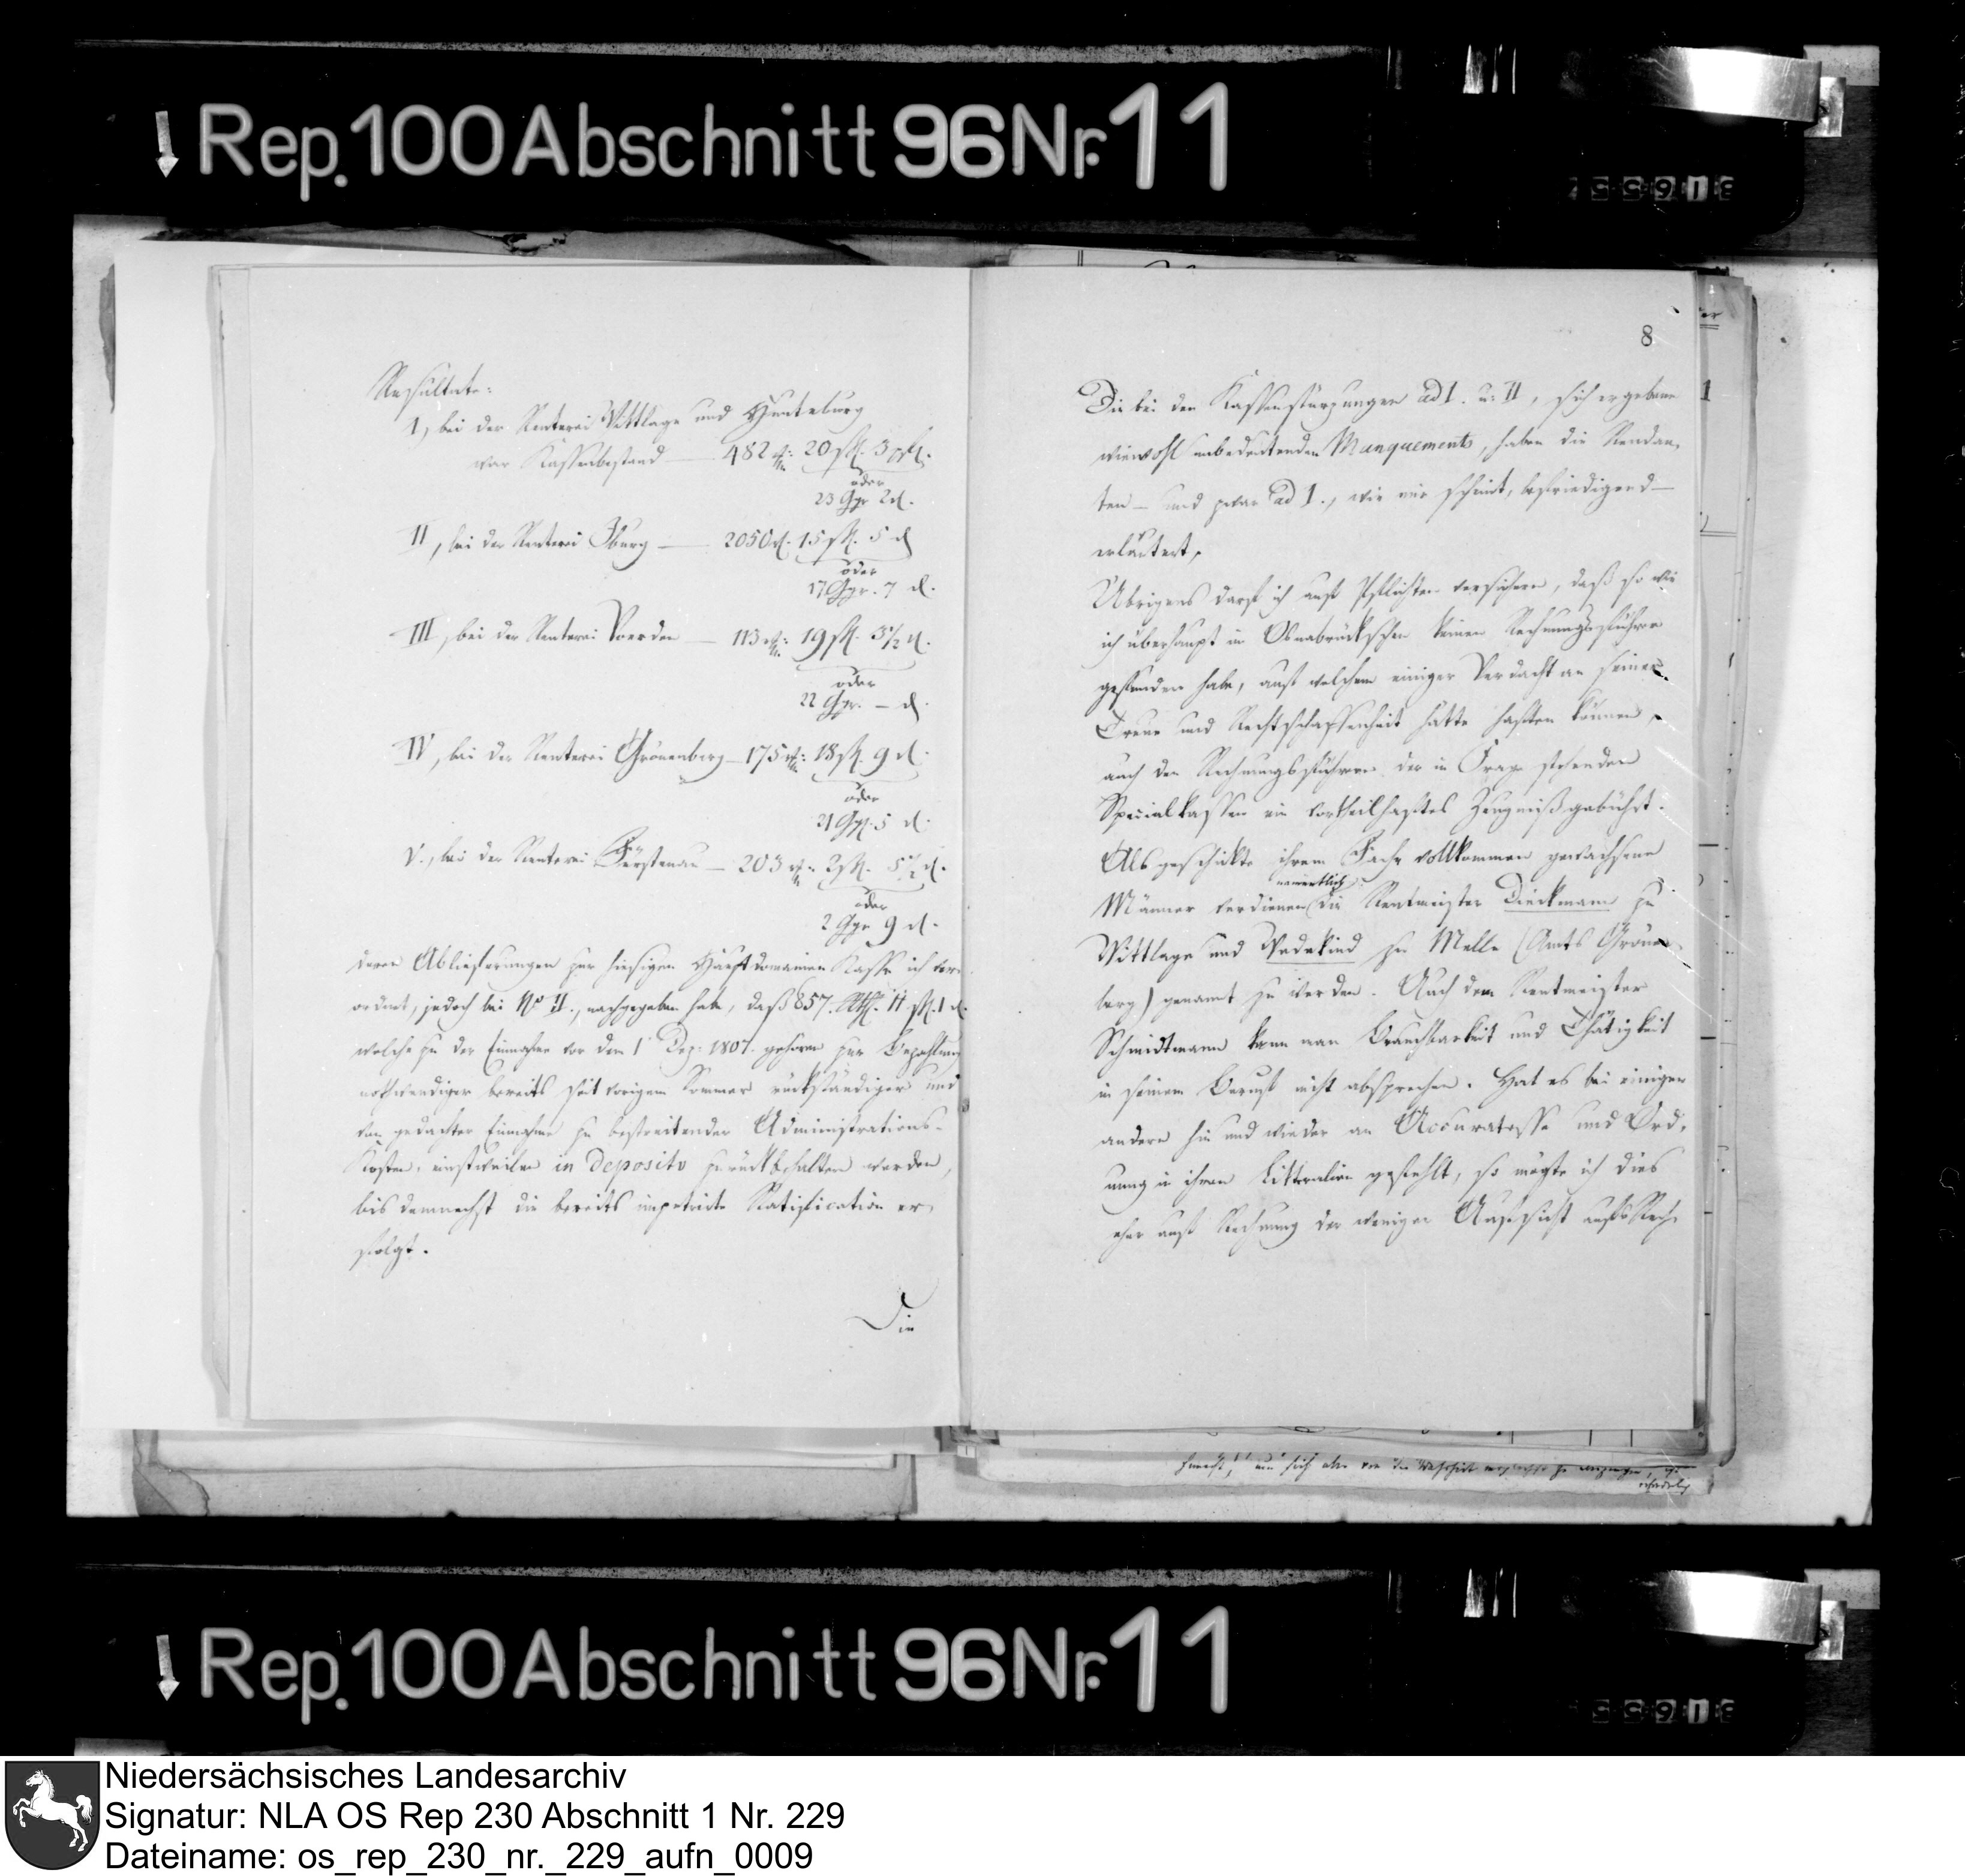 Rep. 100 Abschnitt 96 Nr. 11
Resultate:
I, bei der Renterei Wittlage und Hunteburg
war Kassenbestand — 482 rt: 20 ßl. 3 pf.
oder
23 Ggr 2 d.
II, bei der Renterei Iburg — 2050 rt. 15 ßl. 5 d
oder
17 Ggr. 7 d.
III, bei der Renterei Voerden — 113 rt: 19 ßl. 3½ d.
oder
22 Ggr. — d.
IV, bei der Renterei Grönenberg — 175 rt: 18 ßl. 9 d.
oder
21 Ggr. 5 d.
V., bei der Renterei Fürstenau — 203 rt: 2 ßl. 5½ d.
oder
2 Ggr 9 d.
deren Ablieferungen zur hiesigen Hauptdomainen Kasse ich ver-
ordnet, jedoch bei No II., nachgegeben habe, daß 857. Rthlr. 11 ßl. 1 d.
welche zu der Einnahme vor dem 1 Dez: 1807. gehören zur Bezahlung
nothwendiger bereits seit vorigem Sommer rückständiger und
von gedachter Einnahme zu bestreitender Administrations-
Kosten, einstweilen in deposito zurückbehalten werden,
bis demnächst die bereits impetrirte Ratification er-
folgt.
Die
8
Die bei den Kassenstürzungen ad I. u: II, sich ergebene
wiewohl unbedeutenden Manquements, haben die Rendan-
ten — und zwar ad I., wie mir scheint, befriedigend —
erläutert,
Übrigens darf ich auf Pflichten versichern, daß so wie
ich überhaupt im Osnabrückschen keinen Rechnungsführer
gefunden habe, auf welchem einiger Verdacht an seiner
Treue und Rechtschaffenheit hätte haften können,
auch den Rechnungsführern der in Frage stehenden
Specialkassen ein vortheilhaftes Zeugniß gebührt.
Als geschickte ihrem Fache vollkommen gewachsene
namentlich
Männer verdienen die Rentmeister Dieckmann zu
Wittlage und Wedekind zu Melle (Amts Grönen-
berg) genannt zu werden. Auch dem Rentmeister
Schmidtmann kann man Brauchbarkeit und Thätigkeit
in seinem Beruf nicht absprechen. Hat es bei einigen
andern hin und wieder an Accuratesse und Ord-
nung in ihren Litteralien gefehlt, so mögte ich dies
eher auf Rechnung der weniger Aufsicht aufs Rech-
Rep. 100 Abschnitt 96 Nr. 11
Niedersächsisches Landesarchiv
Signatur: NLA OS Rep 230 Abschnitt 1 Nr. 229
Dateiname: os_rep_230_nr._229_aufn_0009